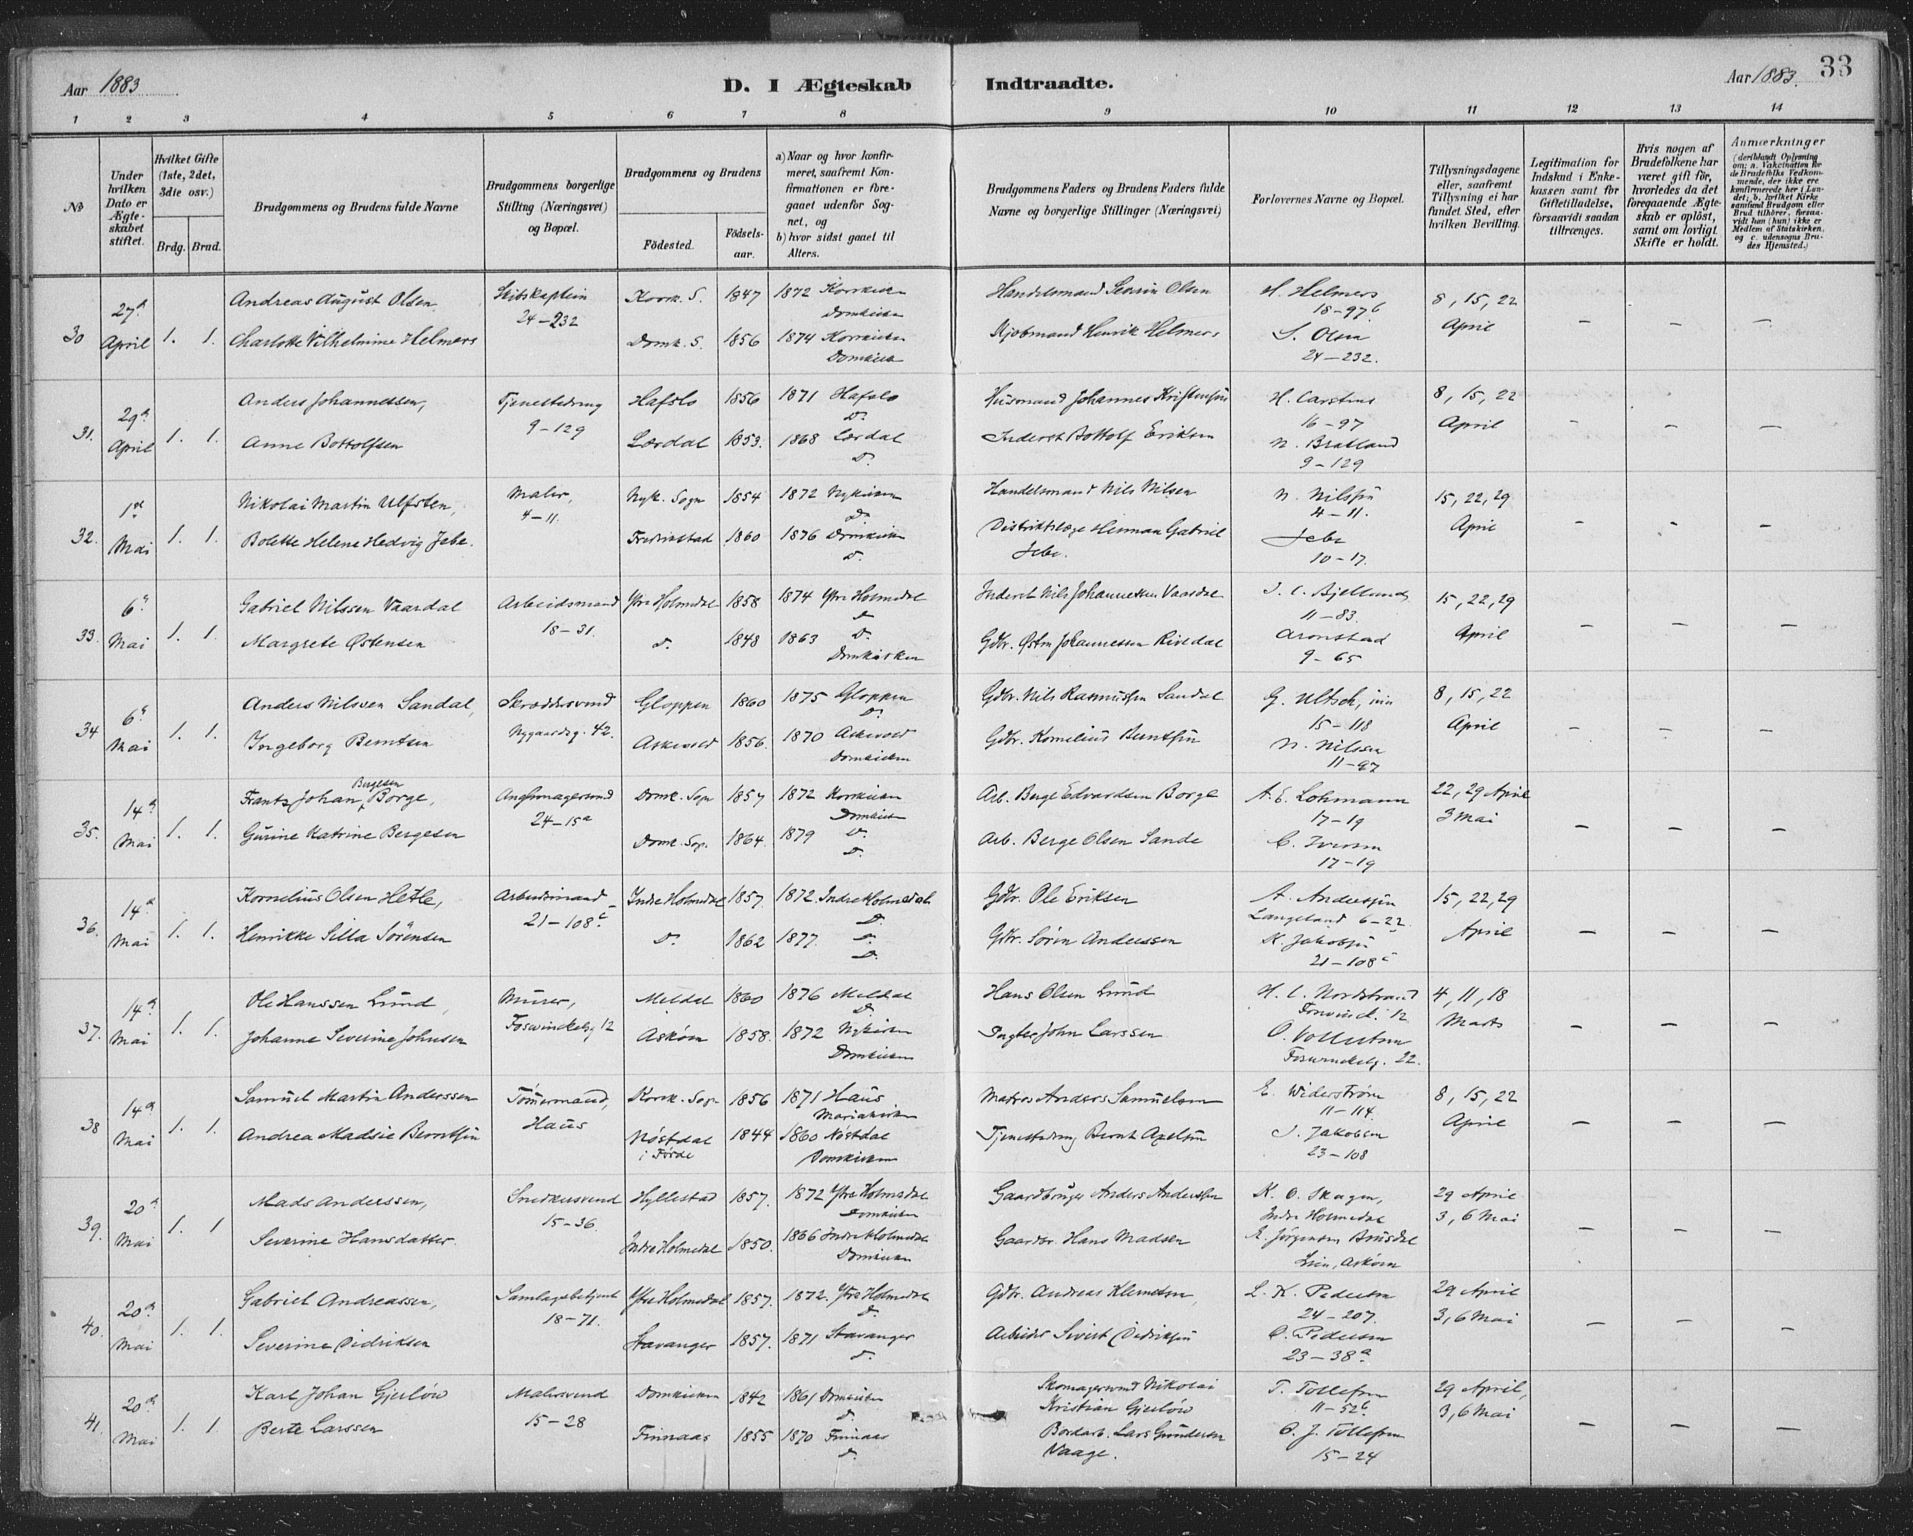 Aar 1883
D. I Ægteskab Indtraadte.
Aar 1883. 33
1 2 3 4 5 6 7 8 9 10 11 12 13 14
No
Under hvilken Dato er Ægteskabet stiftet.
Hvilket Gifte (1ste, 2det, 3die osv.)
Brdg. Brud.
Brudgommens og Brudens fulde Navne
Brudgommens borgerlige Stilling (Næringsvei) og Bopæl.
Brudgommens og Brudens
Födested. Födselsaar.
a) Naar og hvor konfirmeret, saafremt Konfirmationen er foregaaet udenfor Sognet, og
b) hvor sidst gaaet til Alters.
Brudgommens Faders og Brudens Faders fulde Navne og borgerlige Stillinger (Næringsvei)
Forlovernes Navne og Bopæl.
Tillysningsdagene eller, saafremt Tillysning ei har fundet Sted, efter hvilken Bevilling.
Legitimation for Indskud i Enkekassen samt for Giftetilladelse, forsaavidt saadan tiltrænges.
Hvis nogen af Brudefolkene har været gift för, hvorledes da det foregaaende Ægteskab er oplöst, samt om lovligt Skifte er holdt.
Anmærkninger
(deriblandt Oplysning om: a. Vakcination for de Brudefolks Vedkommende, der ikke ere konfirmerede her i Landet; b. hvilket Kirkesamfund Brudgom eller Brud tilhörer, forsaavidt han (hun) ikke er Medlem af Statskirken, og c. udensogns Brudes Hjemsted.)
30 27de April 1. 1.
Andreas August Olsen Skibskaptein 24–232 Korsk. S. 1847 1872 Korskirken Domkirken Handelsmand Severin Olsen H. Helmers 18–97b 8, 15, 22 April – – –
Charlotte Vilhelmine Helmers Domk. S. 1856 1874 Korskirken Domkirken Kjøbmand Henrik Helmers S. Olsen 24–232.
31. 29de April 1. 1.
Anders Johannessen, Tjenestedreng 9–129 Hafslo 1856 1871 Hafslo Do. Husmand Johannes Kristensen H. Carstens 16–97 8, 15, 22 April – – –
Anne Bottolfsen Lærdal 1853. 1868 Lærdal Do. Inderst Bottolf Eriksen N. Bratland 9–129
32. 1ste Mai 1. 1.
Nikolai Martin Ulfsten, Maler, 4–11. Nyk. Sogn 1854 1872 Nykirken Do Handelsmand Nils Nilsen N. Nilssen 4–11. 15, 22, 29 April – – –
Bolette Helene Hedvig Jebe. Fredrikstad 1860 1876 Domkirken Do. Distriktslæge Herman Gabriel Jebe. Jebe 10–17.
33. 6te Mai 1. 1.
Gabriel Nilssen Vaardal Arbeidsmand 18–31. Ytre Holmedal 1858 1874 Ytre Holmedal Do Inderst Nils Johannessen Vaardal 11–83. 15, 22, 29 April – – –
Margrete Østensen Do. 1848 1863 Do. Domkirken Gdbr. Østen Johannessen Rivedal Aronstad 9–65
34 6te Mai 1. 1.
Anders Nilssen Sandal, Skræddersvend Nygaardsg. 42. Gloppen 1860 1875 Gloppen Do. Gdbr. Nils Rasmussen Sandal G. Ultsch, jun 15–118 8, 15, 22 April – – –
Ingeborg Berntsen Askevold 1856. 1870 Askevold Domkirken Gdbr. Kornelius Berntsen N. Nilssen 11–97
35. 14de Mai 1. 1.
Frantz Johan Bergesen Borge, 24–15a Domk. Sogn 1857 1872 Korskirken Domkirken Arb. Berge Edvardsen Borge A. E. Lohmann 17–19 22, 29 April 3 Mai – – –
Gurine Katrine Bergesen Domk. Sogn. 1864. 1879 Do. Do. Arb. Berge Olsen Sande C. Iversen 17–19
36. 14de Mai 1. 1.
Kornelius Olsen Hetle, Arbeidsmand 21–108c Indre Holmedal 1857. 1872 Indre Holmedal Do. Gdbr. Ole Eriksen A. Anderssen Langeland 6–22 15, 22, 29 April – – –
Henrikke Silla Sørensen Do. 1862 1877. Do. Do. Gdbr. Søren Anderssen K. Jakobsen 21–108c
37. 14de Mai 1. 1.
Ole Hanssen Lund, Murer, Foswinckelsg 12 Meldal 1860 1876 Meldal Do. Hans Olsen Lund H. C. Nordstrand Foswinck. 12 4, 11, 18 Marts – – –
Johanne Severine Johnsen Askøen 1858. 1872 Nykirken Domkirken John Larssen O. Vollestsen Foswinckelg. 22.
38 14de Mai 1. 1.
Samuel Martin Anderssen Tømmermand, Haus Korsk. Sogn 1856 1871 Haus Mariakirken Matros Anders Samuelsen E. Widerstrøm 11–114. 8, 15, 22 April – – –
Andrea Madsie Berntsen Nøstdal i Førde 1844 1860 Nøstdal Domkirken Tjenestedreng Bernt Axelsen J. Jakobsen 23–108
39. 20de Mai 1. 1
Mads Anderssen, Snedkersvend 15–36. Hyllestad 1857. 1872 Ytre Holmedal Domkirken Gaardbruger Anders Anderssen K. O. Skagen, Indre Holmedal 29 April 3, 6 Mai – – –
Severine Hansdatter. Indre Holmedal 1850. 1866 Indre Holmedal Domkirken Gaardbr. Hans Madsen E. Jørgensen Brusdal Lien, Askøen
40. 20de Mai 1. 1.
Gabriel Andreassen, Samlagsbetjent 18–71. Ytre Holmedal 1857. 1872. Ytre Holmedal Do. Gdbr. Andreas Klemetsen L. K. Pedersen 24–207. 29 April 3, 6 Mai – – –
Severine Didriksen Stavanger 1857. 1871 Stavanger Do. Arbeider Sivert Didriksen O. Pedersen 23–38a.
41. 20de Mai 1. 1
Karl Johan Gjerløw Malersvend 15–28 Domkirken 1842 1861 Domkirken Do. Skomagersvend Nikolai Kristian Gjerløw T. Tollefsen 11–52b 29 April, 3, 6 Mai – – –
Berte Larssen Finnaas 1855 1870 Finnaas Do. Bordarb. Lars Gundersen Vaage. O. J. Tollefsen 15–24